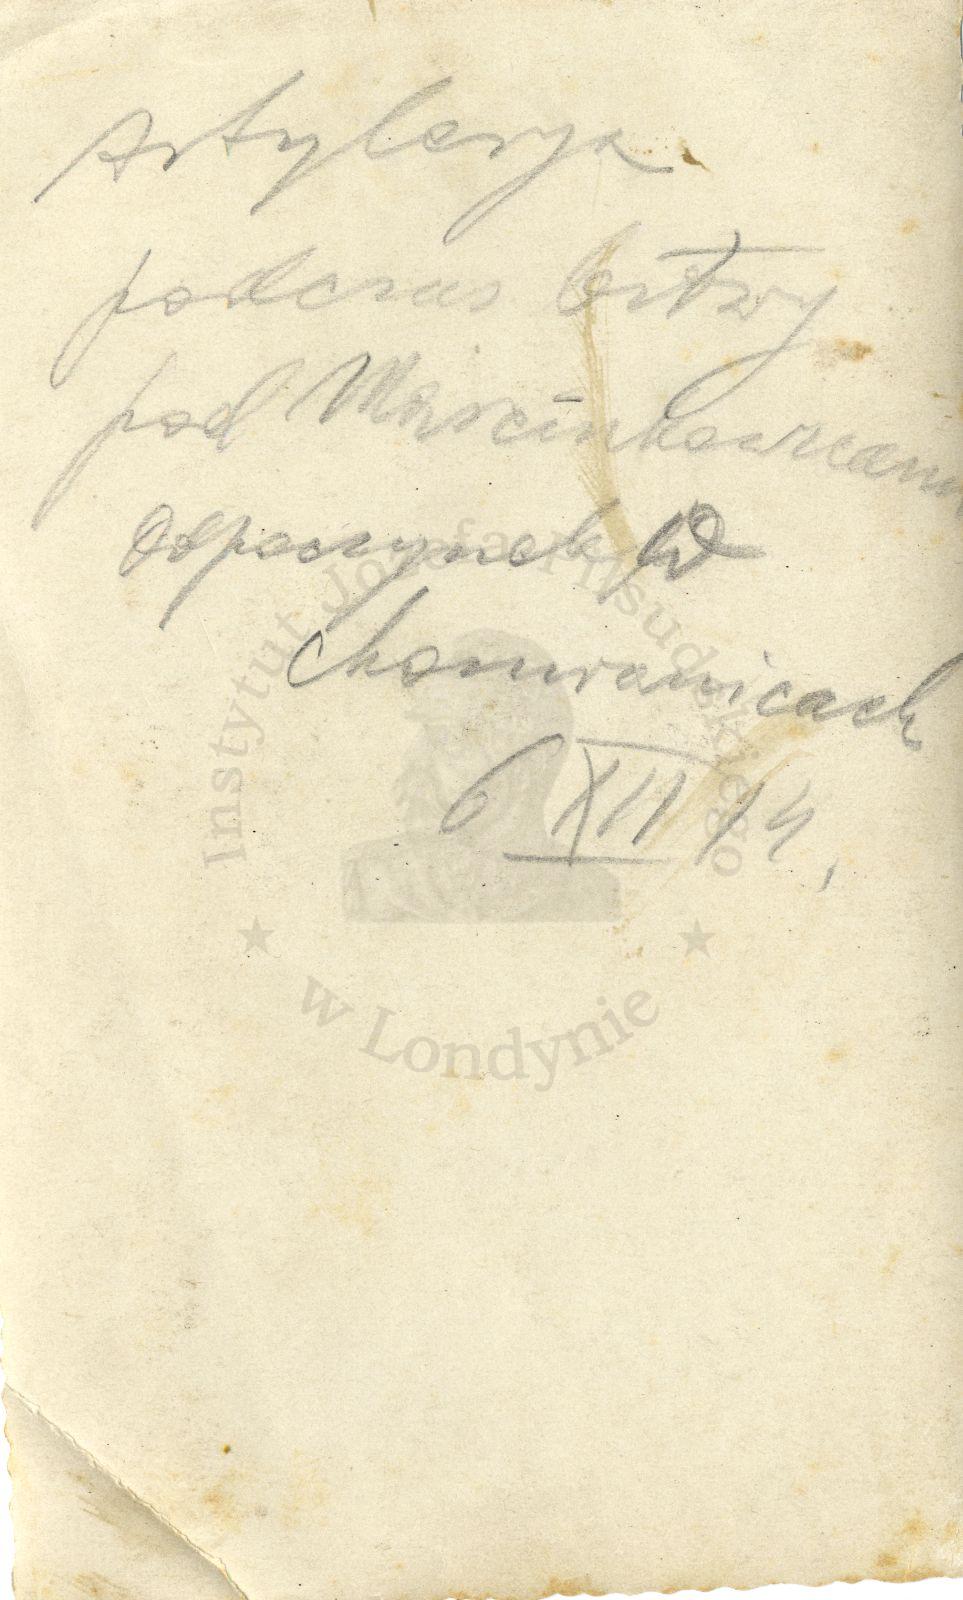 Artylerya
podczas bitwy
pod Marcinkowicami
Odpoczynek W
Chomranicach
6 XII 14.
Instytut Józefa Piłsudskiego
w Londynie